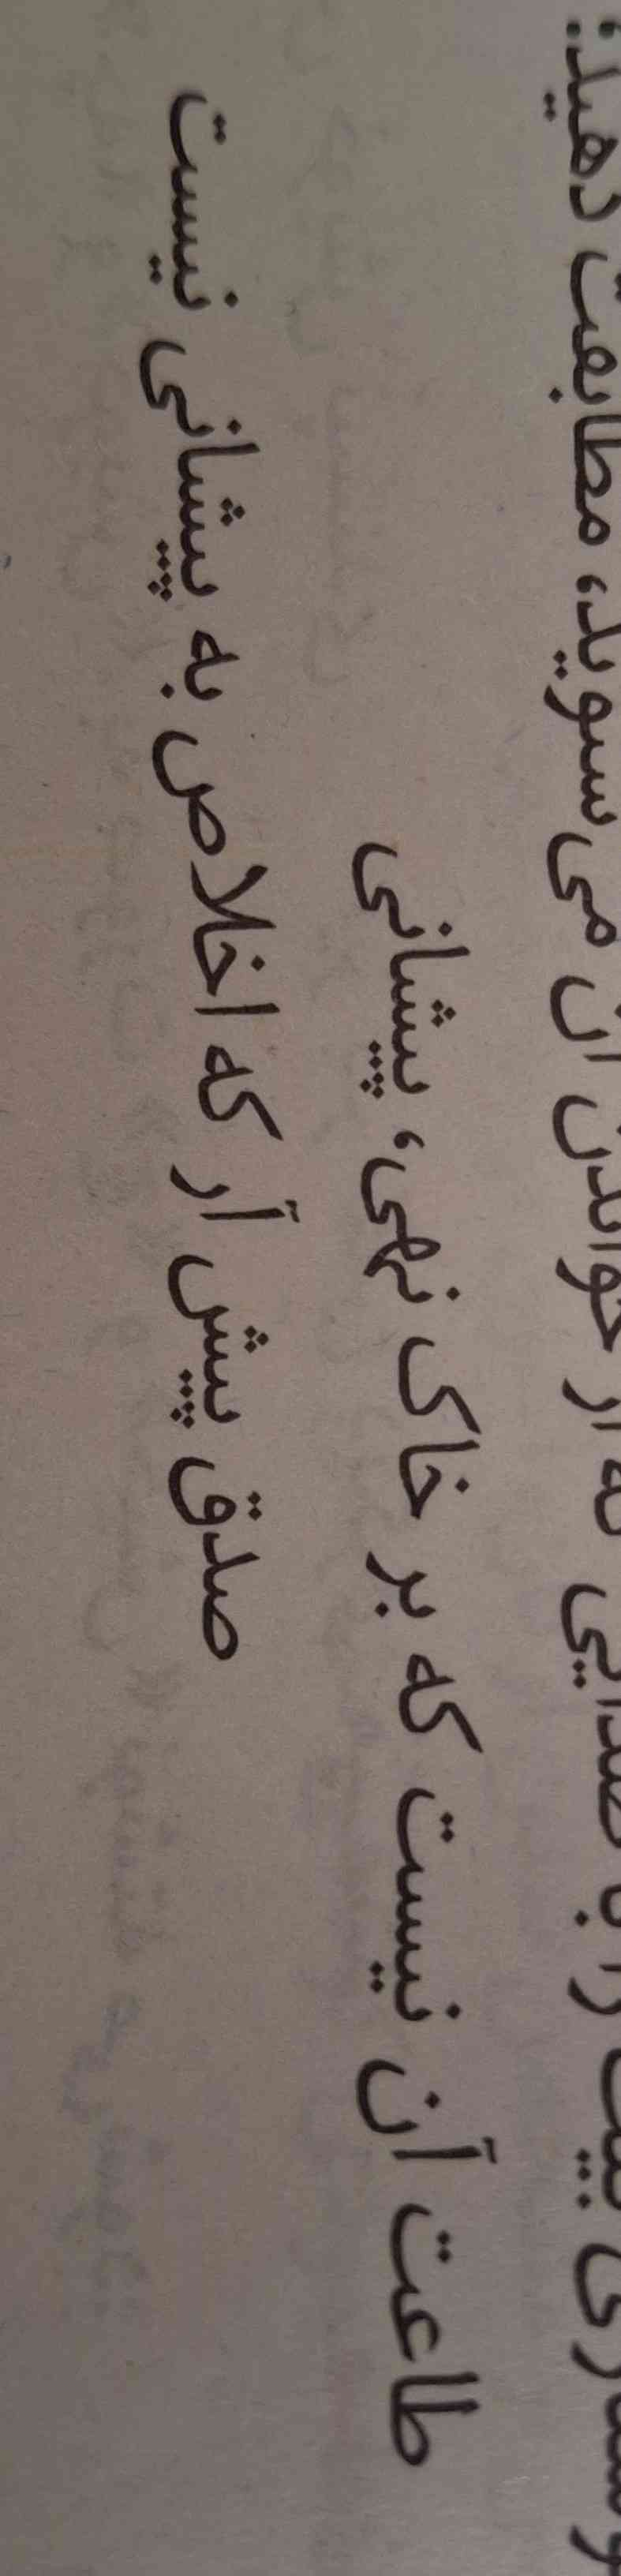 را با صدایی که از خواندن آن می‌شنوید، مطابقت دهید:
طاعت آن نیست که بر خاک نهی، پیشانی
صدق پیش آر که اخلاص به پیشانی نیست